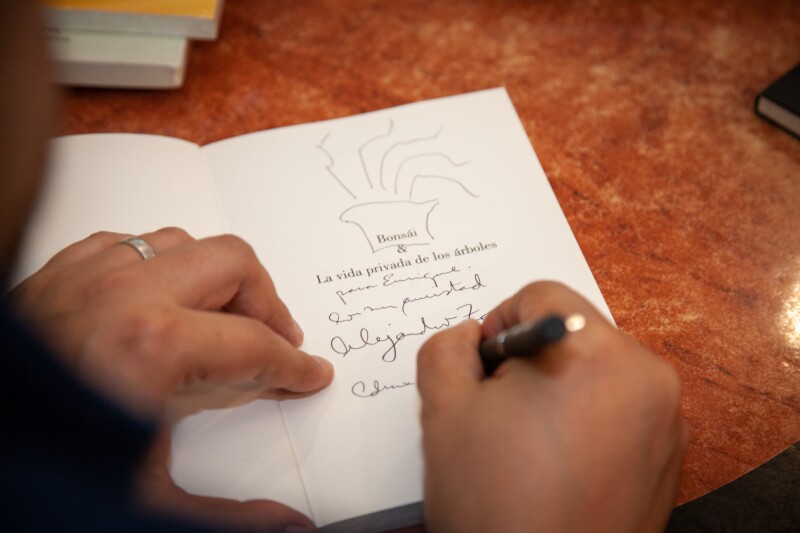 Bonsái
&
La vida privada de los árboles
para Enrique,
con mi amistad
Alejandro Z